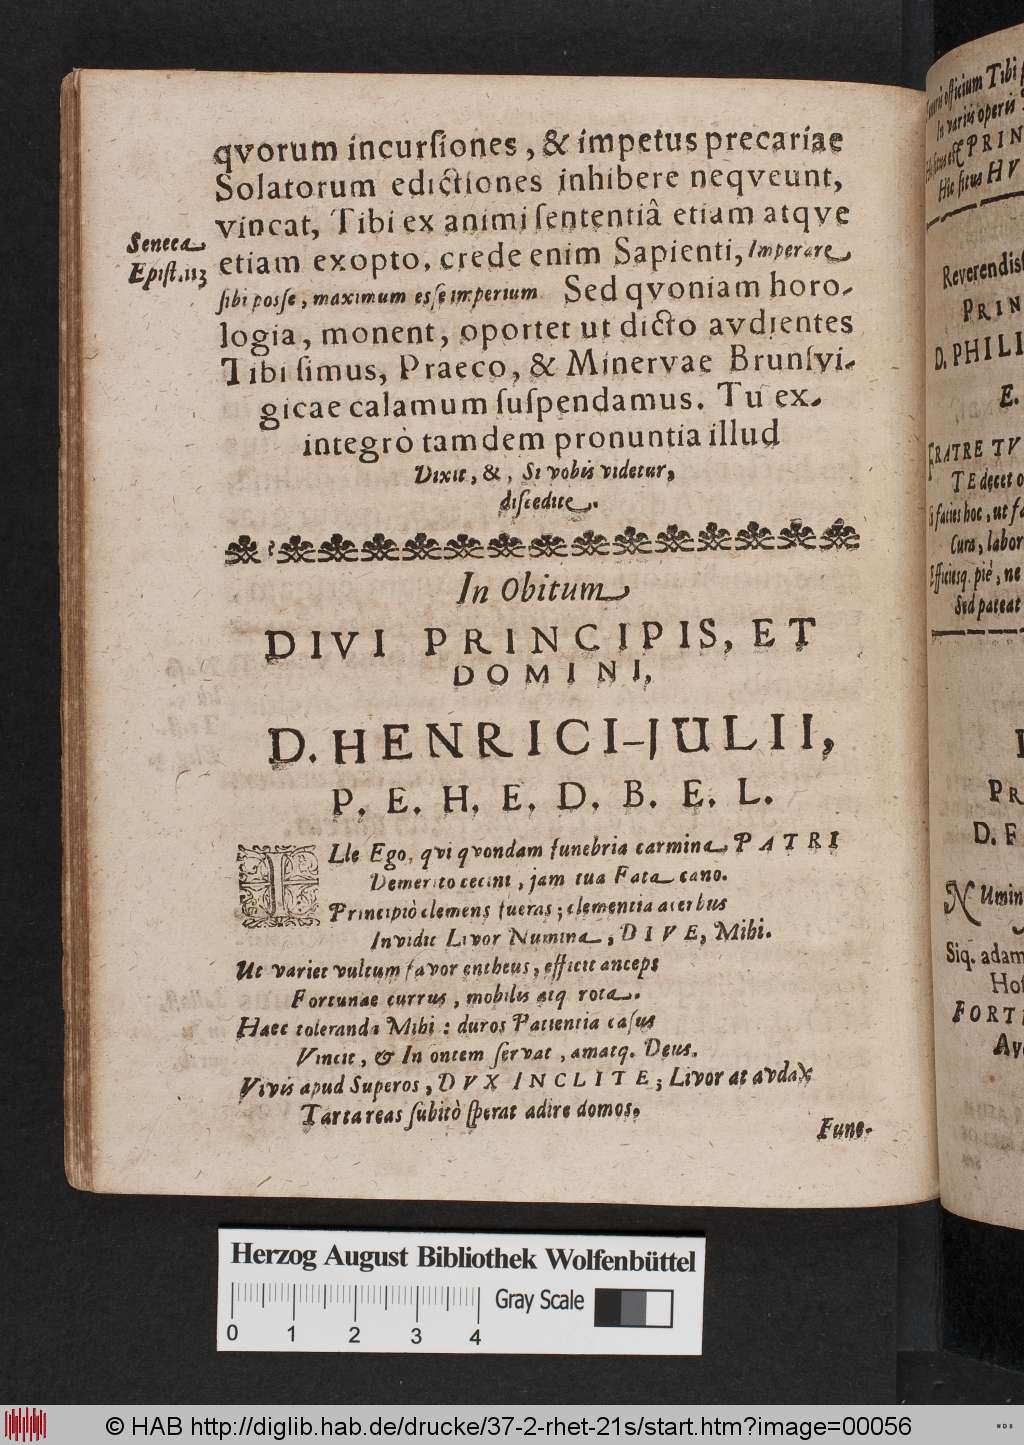 qvorum incurſiones, & impetus precariae
Solatorum edictiones inhibere neqveunt,
vincat, Tibi ex animi ſententiâ etiam atqve
Seneca
Epiſt. 113
etiam exopto, crede enim Sapienti, Imperare
ſibi poſſe, maximum eſſe imperium. Sed qvoniam horo-
logia, monent, oportet ut dicto avdientes
Tibi ſimus, Praeco, & Minervae Brunſvi-
gicae calamum ſuſpendamus. Tu ex
integrò tamdem pronuntia illud
Dixit, &, Si vobis videtur,
diſcedite.
In Obitum
DIVI PRINCIPIS, ET
DOMINI,
D. HENRICI-JULII,
P. E. H. E. D. B. E. L.
ILle Ego, qvi qvondam funebria carmina PATRI
Demerito cecini, jam tua Fata cano.
Principiò clemens fueras; clementia acerbus
Invidit Livor Numina, DIVE, Mihi.
Ut variet vultum favor entheus, efficit anceps
Fortunae currus, mobilis atq rota.
Haec toleranda Mihi: duros Patientia caſus
Vincit, & In ontem ſervat, amatq. Deus.
Vivis apud Superos, DVX INCLITE; Livor at avdax
Tartareas ſubitò ſperat adire domos.
Fune-
officium Tibi
In variis operis
PRIN
Hic ſitus HV
Reverendiſ
PRIN
D. PHILI
E.
FRATRE TV
TE decet
facies hoc, ut
Cura, labor
Efficiesq. piè, ne
Sed pateat
PR
D. F
NUmin
Siq. adam
Hoſ
FORTI
Herzog August Bibliothek Wolfenbüttel
0 1 2 3 4
Gray Scale
© HAB http://diglib.hab.de/drucke/37-2-rhet-21s/start.htm?image=00056